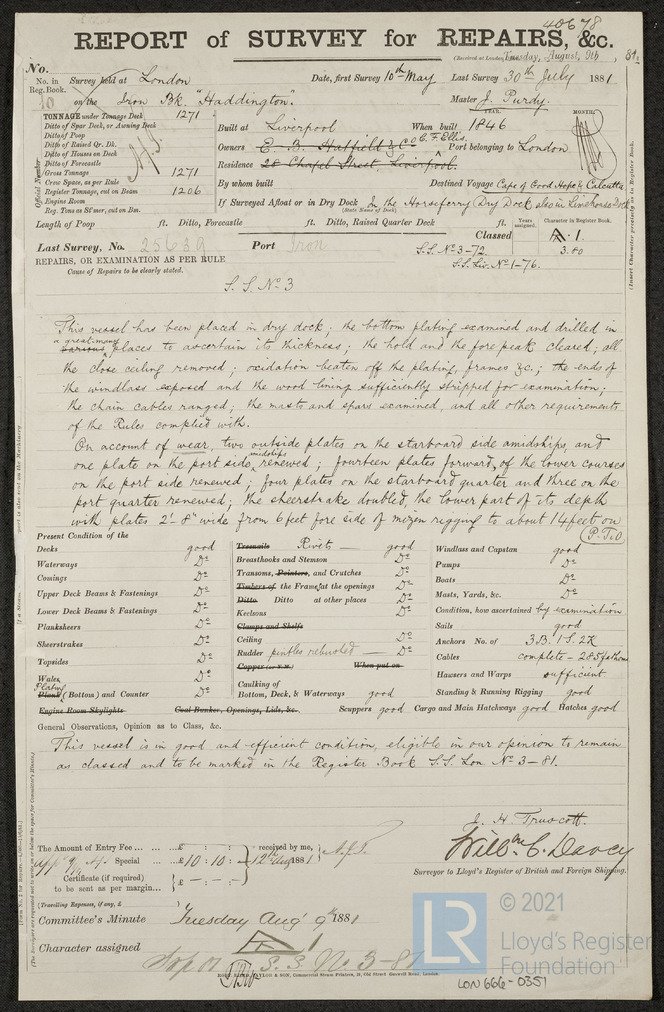 40678
REPORT of SURVEY for REPAIRS, &c.
(Received at London, Tuesday, August, 9th, 81.
No.
No. in Reg. Book.
Survey held at London Date, first Survey 10th May Last Survey 30th July 1881
10 on the Iron Bk. "Haddington." Master J. Purdy.
TONNAGE under Tonnage Deck 1271
Ditto of Spar Deck, or Awning Deck
Ditto of Poop
Ditto of Raised Qr. Dk.
Ditto of Houses on Deck
Ditto of Forecastle
Gross Tonnage 1271
Crew Space, as per Rule
Register Tonnage, cut on Beam 1206
Engine Room
Reg. Tons as St'mer, cut on Bm.
Official Number
YEAR. MONTH.
Built at Liverpool When built 1846
Owners E. B. Hatfield & Co C. F. Ellis. Port belonging to London
Residence 28 Chapel Street Liverpool.
By whom built Destined Voyage Cape of Good Hope & Calcutta
If Surveyed Afloat or in Dry Dock In the Horseferry Dry Dock also in Limehouse Dock
(State Name of Dock.)
Length of Poop ft. Ditto, Forecastle ft. Ditto, Raised Quarter Deck ft.
Years assigned. Character in Register Book.
(Insert Character precisely as in Register Book.
Last Survey, No. 25639 Port Iron Classed A. 1.
S.S. No 3-72. 3.80
S.S. Liv. No 1-76.
REPAIRS, OR EXAMINATION AS PER RULE
Cause of Repairs to be clearly stated.
S. S. No 3
This vessel has been placed in dry dock; the bottom plating examined and drilled in
a great many
various places to ascertain its thickness; the hold and the fore peak cleared; all
the close ceiling removed; oxidation beaten off the plating, frames &c.; the ends of
the windlass exposed and the wood lining sufficiently stripped for examination;
the chain cables ranged; the masts and spars examined, and all other requirements
of the Rules complied with.
On account of wear, two outside plates on the starboard side amidships, and
one plate on the port side, amidships renewed; fourteen plates forward, of the lower courses
on the port side renewed; four plates on the starboard quarter and three on the
port quarter renewed; the sheerstrake doubled, the lower part of its depth
with plates 2'-8" wide from 6 feet fore side of mizen rigging to about 14 feet on
(P.T.O)
Present Condition of the
Decks good
Waterways Do
Comings Do
Upper Deck Beams & Fastenings Do
Lower Deck Beams & Fastenings Do
Planksheers Do
Sheerstrakes Do
Topsides Do
Wales Do
Plating
Plank (Bottom) and Counter Do
Engine Room Skylights Coal Bunker, Openings, Lids, &c.
Treenails Rivets good
Breasthooks and Stemson Do
Transoms, Pointers, and Crutches Do
Timbers of the Frame, at the openings Do
Ditto Ditto at other places Do
Keelsons Do
Clamps and Shelfs
Ceiling Do
Rudder pintles rebushed Do
Copper (or Y.M.) When put on
Caulking of
Bottom, Deck, & Waterways good
Scuppers good Cargo and Main Hatchways good Hatches good
Windlass and Capstan good
Pumps Do
Boats Do
Masts, Yards, &c. Do
Condition, how ascertained by examination
Sails good
Anchors No. of 3 B. 1 S. 2 K
Cables complete - 285 fathoms
Hawsers and Warps sufficient
Standing & Running Rigging good
General Observations, Opinion as to Class, &c.
This vessel is in good and efficient condition, eligible in our opinion to remain
as classed and to be marked in the Register Book S.S. Lon. No 3-81.
J. H. Truscott.
Willm C. Davey
Surveyor to Lloyd's Register of British and Foreign Shipping.
The Amount of Entry Fee ... £ : : received by me,
Special ... £10 : 10 : 12th Aug 1881
Certificate (if required) £ - : - :
to be sent as per margin...
(Travelling Expenses, if any, £
Committee's Minute Tuesday Aug 9th 1881
Character assigned A 1
S.S. No. 3-81
© 2021
LR
Lloyd's Register
Foundation
LON 666-0351